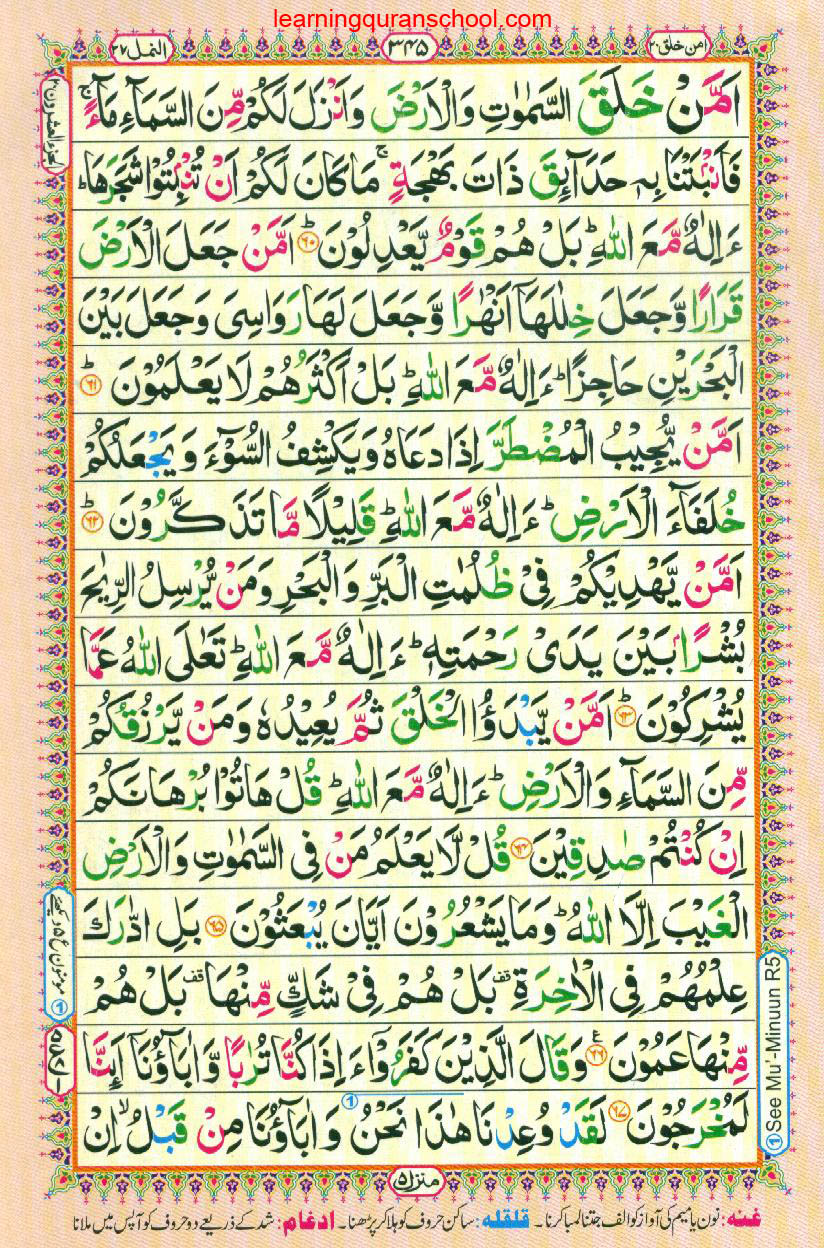 learningquranschool.com
امن خلق ۲۰
۳۴۵
النمل ۲۷
اَمَّنْ خَلَقَ السَّمٰوٰتِ وَالْاَرْضَ وَاَنْزَلَ لَكُمْ مِّنَ السَّمَآءِ مَآءً ۚ
فَاَنْۢبَتْنَا بِهٖ حَدَآئِقَ ذَاتَ بَهْجَةٍ ۚ مَا كَانَ لَكُمْ اَنْ تُنْۢبِتُوْا شَجَرَهَا ؕ
ءَاِلٰهٌ مَّعَ اللّٰهِ ؕ بَلْ هُمْ قَوْمٌ يَّعْدِلُوْنَ ؕ ۶۰ اَمَّنْ جَعَلَ الْاَرْضَ
قَرَارًا وَّجَعَلَ خِلٰلَهَاۤ اَنْهٰرًا وَّجَعَلَ لَهَا رَوَاسِىَ وَجَعَلَ بَيْنَ
الْبَحْرَيْنِ حَاجِزًا ؕ ءَاِلٰهٌ مَّعَ اللّٰهِ ؕ بَلْ اَكْثَرُهُمْ لَا يَعْلَمُوْنَ ؕ ۶۱
اَمَّنْ يُّجِيْبُ الْمُضْطَرَّ اِذَا دَعَاهُ وَيَكْشِفُ السُّوْٓءَ وَيَجْعَلُكُمْ
خُلَفَآءَ الْاَرْضِ ؕ ءَاِلٰهٌ مَّعَ اللّٰهِ ؕ قَلِيْلًا مَّا تَذَكَّرُوْنَ ؕ ۶۲
اَمَّنْ يَّهْدِيْكُمْ فِىْ ظُلُمٰتِ الْبَرِّ وَالْبَحْرِ وَمَنْ يُّرْسِلُ الرِّيٰحَ
بُشْرًۢا بَيْنَ يَدَىْ رَحْمَتِهٖ ؕ ءَاِلٰهٌ مَّعَ اللّٰهِ ؕ تَعٰلَى اللّٰهُ عَمَّا
يُشْرِكُوْنَ ؕ ۶۳ اَمَّنْ يَّبْدَؤُا الْخَلْقَ ثُمَّ يُعِيْدُهٗ وَمَنْ يَّرْزُقُكُمْ
مِّنَ السَّمَآءِ وَالْاَرْضِ ؕ ءَاِلٰهٌ مَّعَ اللّٰهِ ؕ قُلْ هَاتُوْا بُرْهَانَكُمْ
اِنْ كُنْتُمْ صٰدِقِيْنَ ۶۴ قُلْ لَّا يَعْلَمُ مَنْ فِى السَّمٰوٰتِ وَالْاَرْضِ
الْغَيْبَ اِلَّا اللّٰهُ ؕ وَمَا يَشْعُرُوْنَ اَيَّانَ يُبْعَثُوْنَ ۶۵ بَلِ ادّٰرَكَ
عِلْمُهُمْ فِى الْاٰخِرَةِ قف بَلْ هُمْ فِىْ شَكٍّ مِّنْهَا قف بَلْ هُمْ
مِّنْهَا عَمُوْنَ ۶۶ ع وَقَالَ الَّذِيْنَ كَفَرُوْٓا ءَاِذَا كُنَّا تُرٰبًا وَّاٰبَآؤُنَاۤ اَئِنَّا
لَمُخْرَجُوْنَ ۶۷ لَقَدْ وُعِدْنَا هٰذَا نَحْنُ وَاٰبَآؤُنَا مِنْ قَبْلُ ۙ اِنْ
الجزء العشرون ۲۰
① See Mu'-Minuun R5
منزل ۵
غنّه: نون یا میم کی آواز کو الف جتنا لمبا کرنا۔ قلقله: ساکن حروف کو ہلا کر پڑھنا۔ ادغام: شد کے ذریعے دو حروف کو آپس میں ملانا